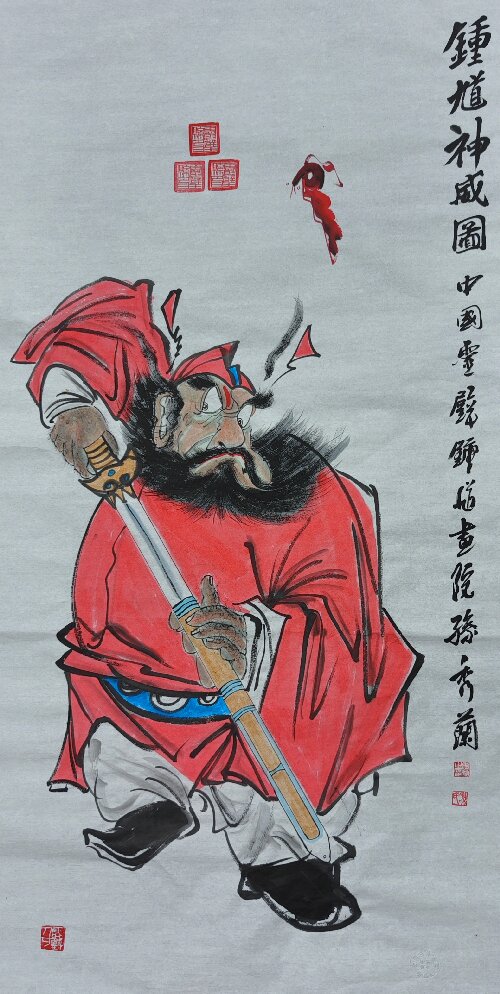 鍾馗神威圖
中國靈壁鍾馗畫院孫秀蘭